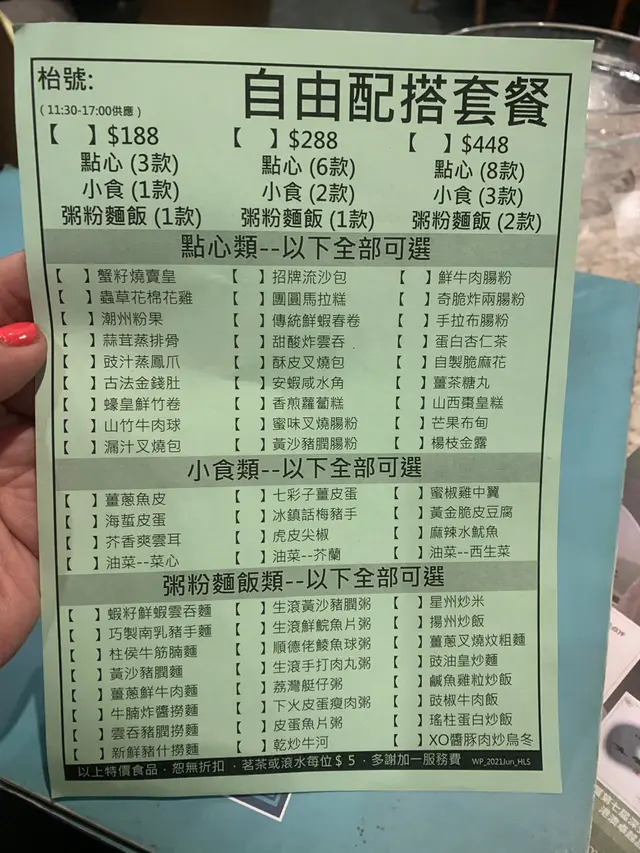 枱號:
自由配搭套餐
(11:30-17:00供應)
【 】$188 【 】$288 【 】$448
點心 (3款) 點心 (6款) 點心 (8款)
小食 (1款) 小食 (2款) 小食 (3款)
粥粉麵飯 (1款) 粥粉麵飯 (1款) 粥粉麵飯 (2款)
點心類--以下全部可選
【 】蟹籽燒賣皇 【 】招牌流沙包 【 】鮮牛肉腸粉
【 】蟲草花棉花雞 【 】團圓馬拉糕 【 】奇脆炸兩腸粉
【 】潮州粉果 【 】傳統鮮蝦春卷 【 】手拉布腸粉
【 】蒜茸蒸排骨 【 】甜酸炸雲吞 【 】蛋白杏仁茶
【 】豉汁蒸鳳爪 【 】酥皮叉燒包 【 】自製脆麻花
【 】古法金錢肚 【 】安蝦咸水角 【 】薑茶糖丸
【 】蠔皇鮮竹卷 【 】香煎蘿蔔糕 【 】山西棗皇糕
【 】山竹牛肉球 【 】蜜味叉燒腸粉 【 】芒果布甸
【 】漏汁叉燒包 【 】黃沙豬潤腸粉 【 】楊枝金露
小食類--以下全部可選
【 】薑蔥魚皮 【 】七彩子薑皮蛋 【 】蜜椒雞中翼
【 】海蜇皮蛋 【 】冰鎮話梅豬手 【 】黃金脆皮豆腐
【 】芥香爽雲耳 【 】虎皮尖椒 【 】麻辣水魷魚
【 】油菜--菜心 【 】油菜--芥蘭 【 】油菜--西生菜
粥粉麵飯類--以下全部可選
【 】蝦籽鮮蝦雲吞麵 【 】生滾黃沙豬膶粥 【 】星州炒米
【 】巧製南乳豬手麵 【 】生滾鮮鯇魚片粥 【 】揚州炒飯
【 】柱侯牛筋腩麵 【 】順德佬鯪魚球粥 【 】薑蔥叉燒炆粗麵
【 】黃沙豬膶麵 【 】生滾手打肉丸粥 【 】豉油皇炒麵
【 】薑蔥鮮牛肉麵 【 】荔灣艇仔粥 【 】鹹魚雞粒炒飯
【 】牛腩炸醬撈麵 【 】下火皮蛋瘦肉粥 【 】豉椒牛肉飯
【 】雲吞豬膶撈麵 【 】皮蛋魚片粥 【 】瑤柱蛋白炒飯
【 】新鮮豬什撈麵 【 】乾炒牛河 【 】XO醬豚肉炒烏冬
以上特價食品．恕無折扣．茗茶或滾水每位$5．多謝加一服務費 WP_2021Jun_HLS